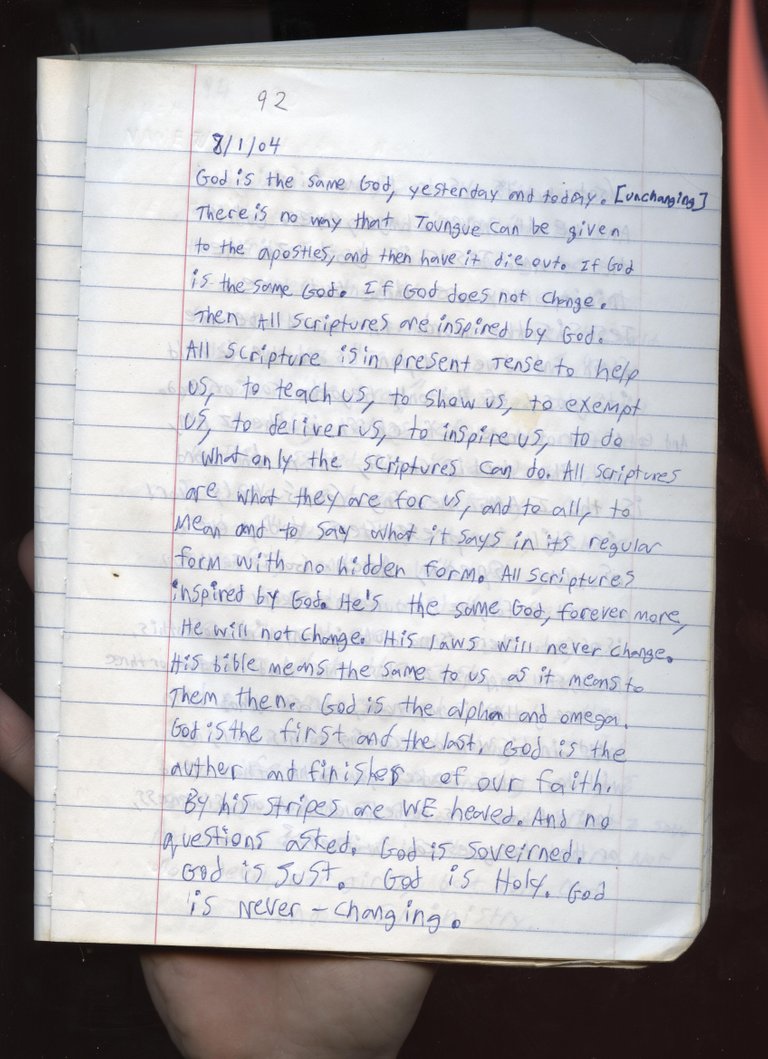 92
8/1/04
God is the same God, yesterday and today. [unchanging]
There is no way that Toungue can be given
to the apostles, and then have it die out. If God
is the same God. If God does not change.
Then All scriptures are inspired by God.
All scripture is in present Tense to help
us, to teach us, to show us, to exempt
us, to deliver us, to inspire us, to do
what only the scriptures can do. All scriptures
are what they are for us, and to all, to
mean and to say what it says in its regular
form with no hidden form. All scriptures
inspired by God. He's the same God, forever more,
He will not change. His laws will never change.
His bible means the same to us as it means to
Them then. God is the alpha and omega.
God is the first and the last, God is the
auther and finisher of our faith.
By his stripes are WE healed. And no
questions asked. God is soveirned.
God is Just. God is Holy. God
is never - changing.